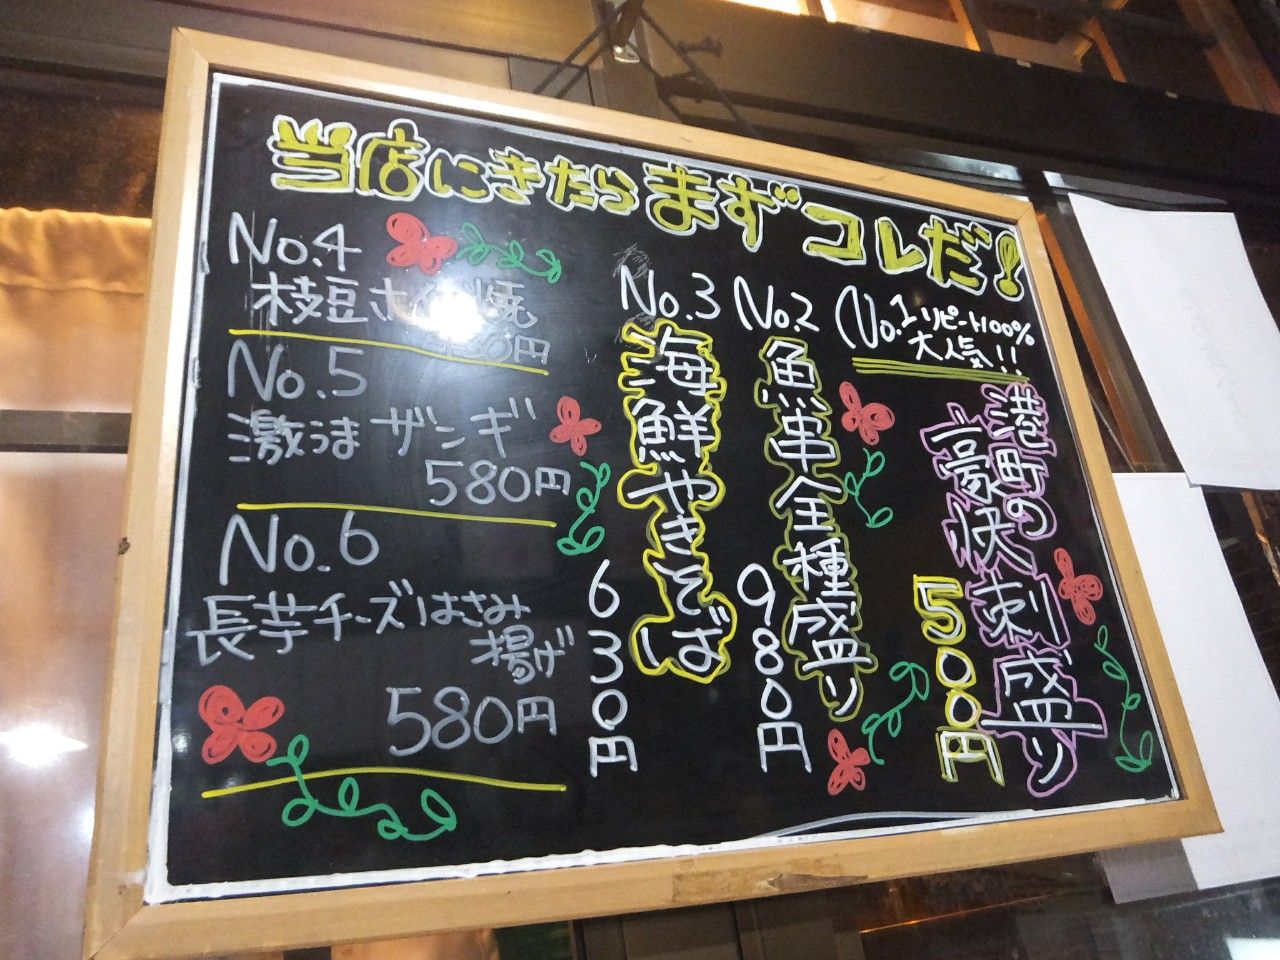 当店にきたらまずコレだ!
No.1 リピート100%
大人気!!
港町の
豪快刺盛り
500円
No.2
魚串全種盛り
980円
No.3
海鮮やきそば
630円
No.4
枝豆ホイル焼
80円
No.5
激うまザンギ
580円
No.6
長芋チーズはさみ
揚げ
580円